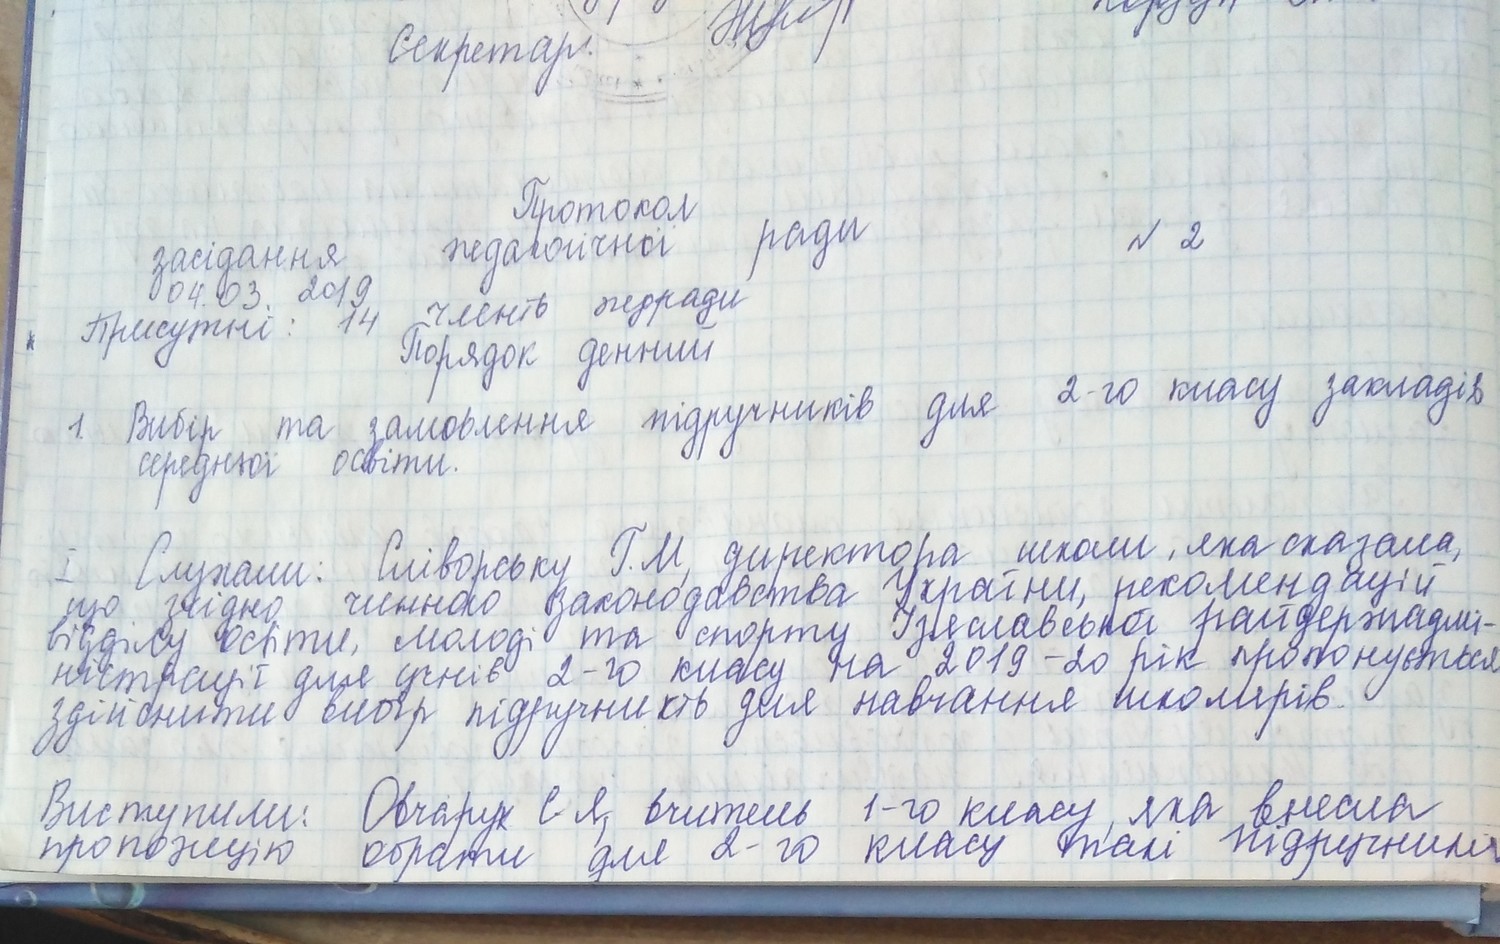 Секретар:
Протокол
засідання педагогічної ради № 2
04.03. 2019
Присутні: 14 членів педради
Порядок денний
1. Вибір та замовлення підручників для 2-го класу закладів
середньої освіти.
I Слухали: Сліворську Г.М, директора школи, яка сказала,
що згідно чинного законодавства України, рекомендацій
відділу освіти, молоді та спорту Ізяславської райдержадмі-
ністрації для учнів 2-го класу на 2019-20 рік пропонується
здійснити вибір підручників для навчання школярів.
Виступили: Овчарук Є Я, вчитель 1-го класу, яка внесла
пропозицію обрати для 2-го класу такі підручники